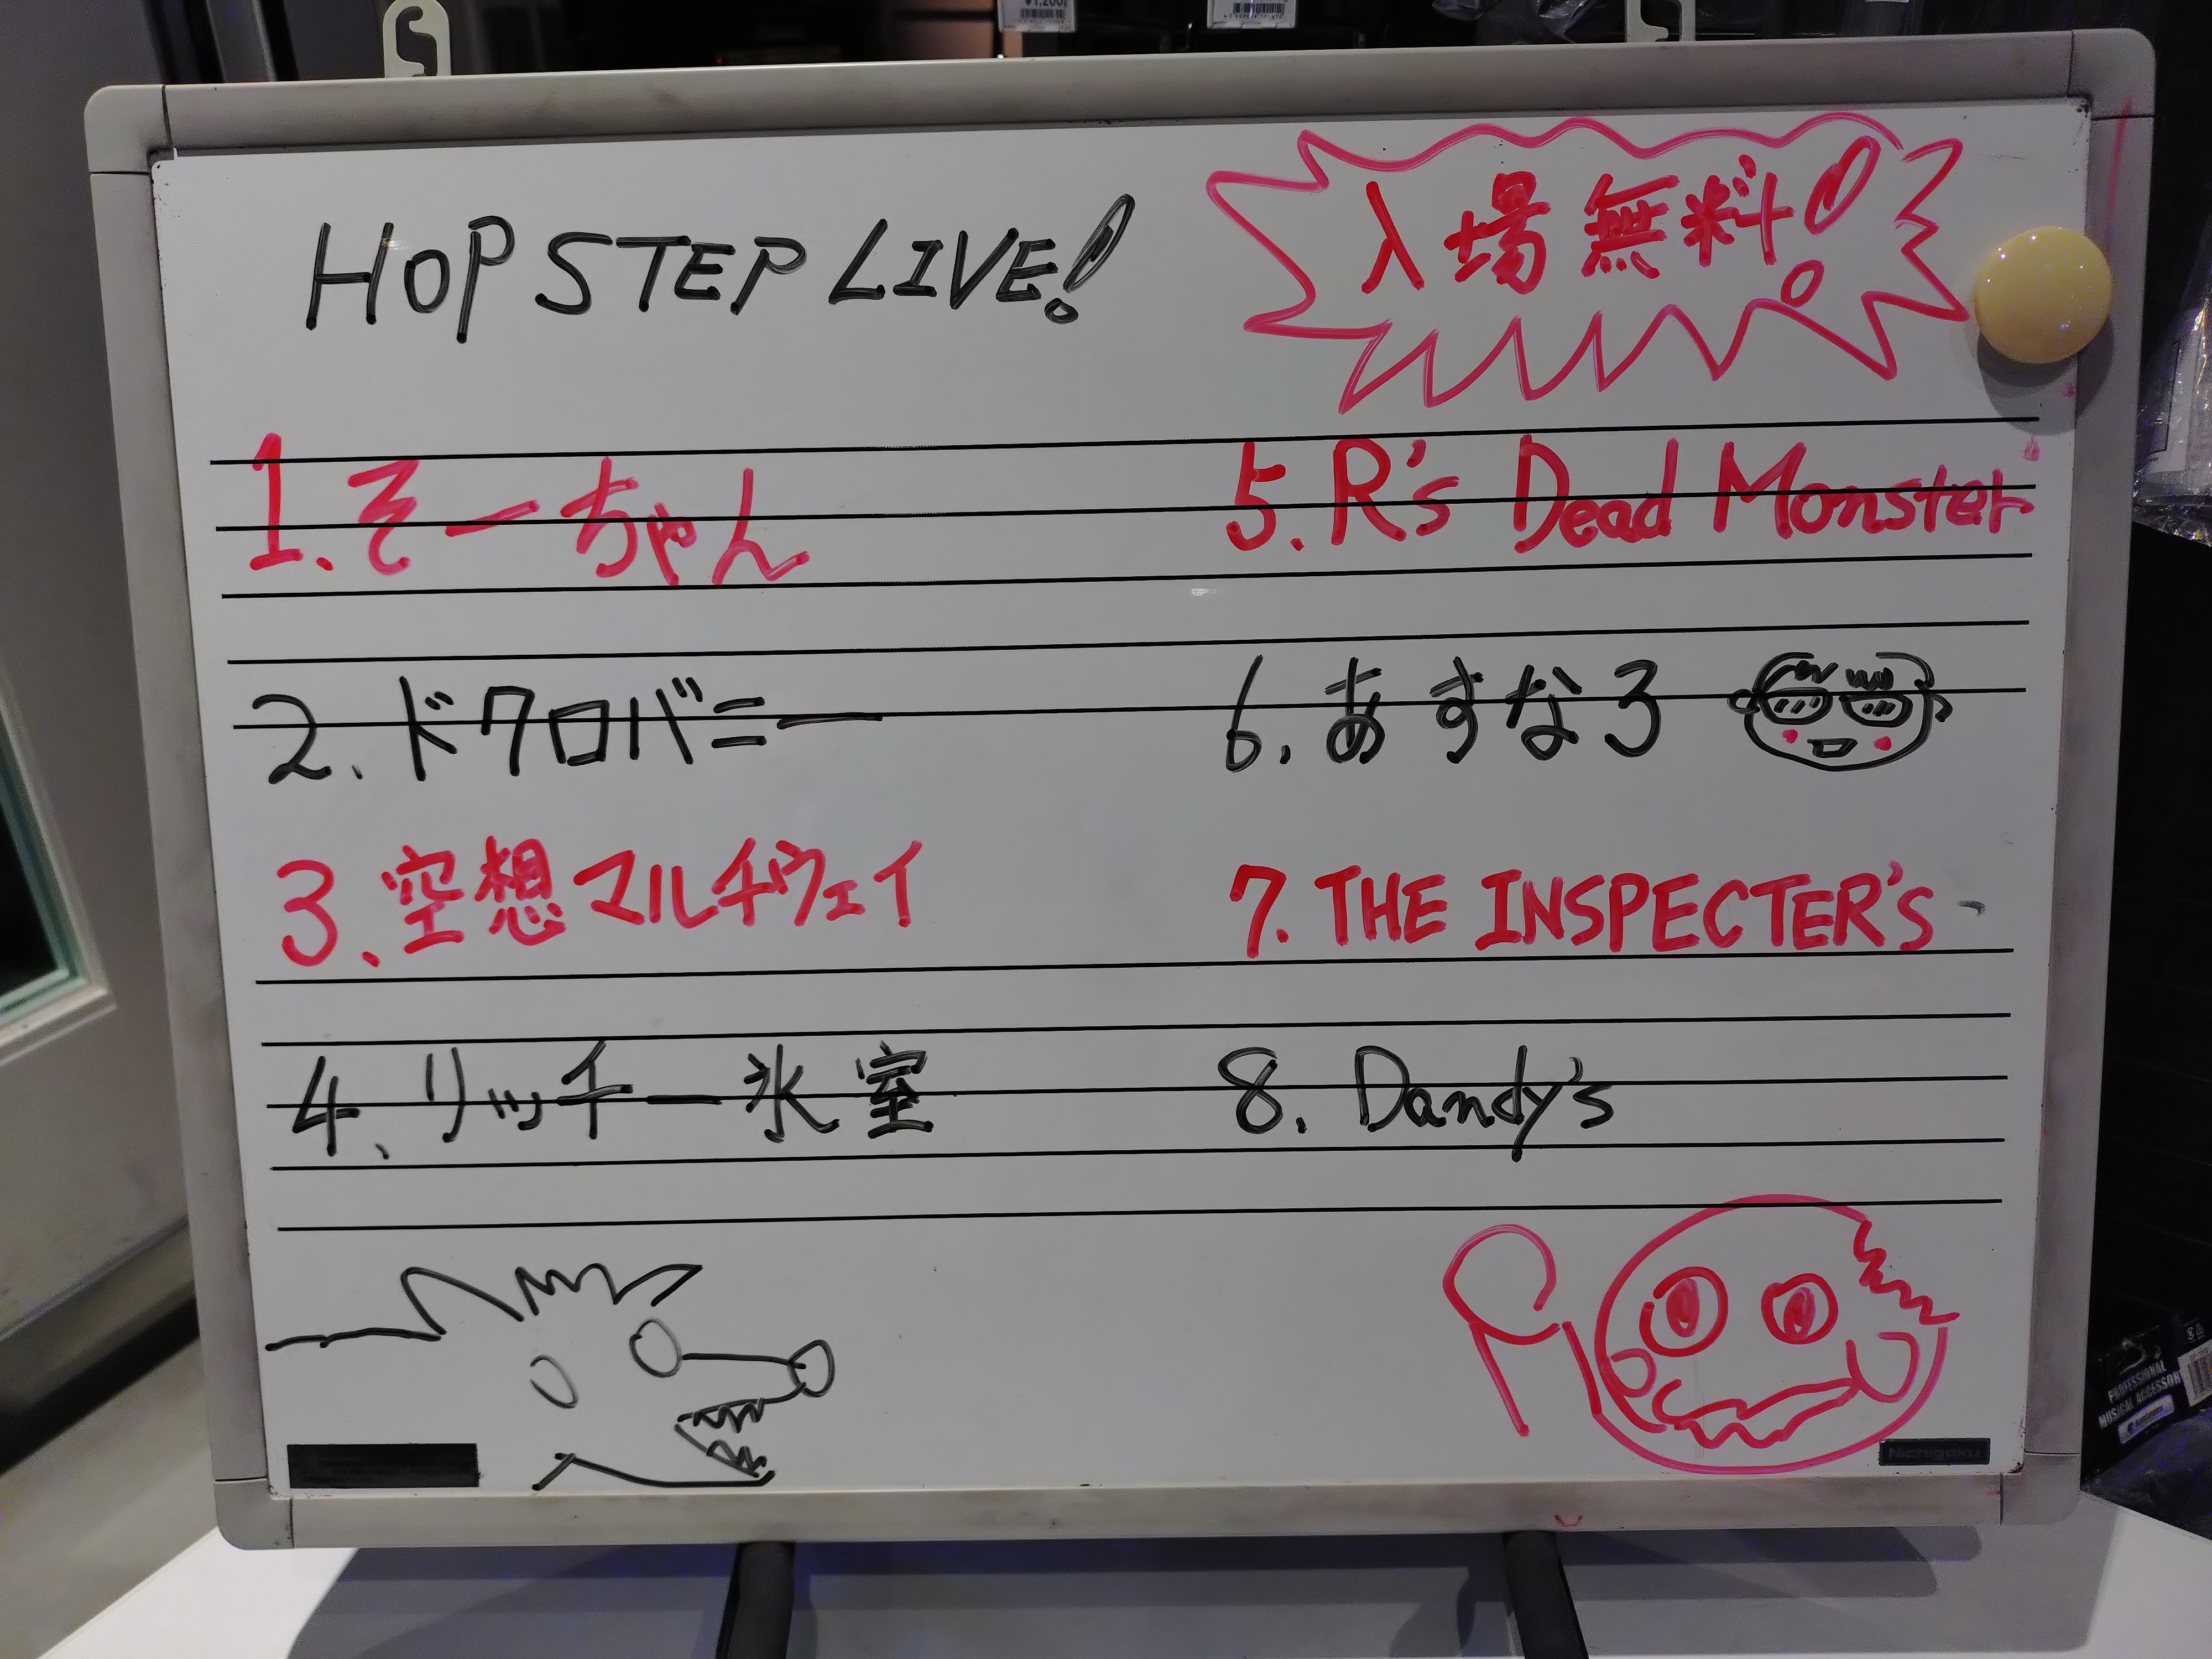 HOP STEP LIVE!
入場無料!
1. そーちゃん
2. ドクロバニー
3. 空想マルチウェイ
4. リッチー氷室
5. R's Dead Monster
6. あすなろ
7. THE INSPECTER's
8. Dandy's
Nichigaku
PROFESSIONAL
MUSICAL ACCESSOR
¥1,200